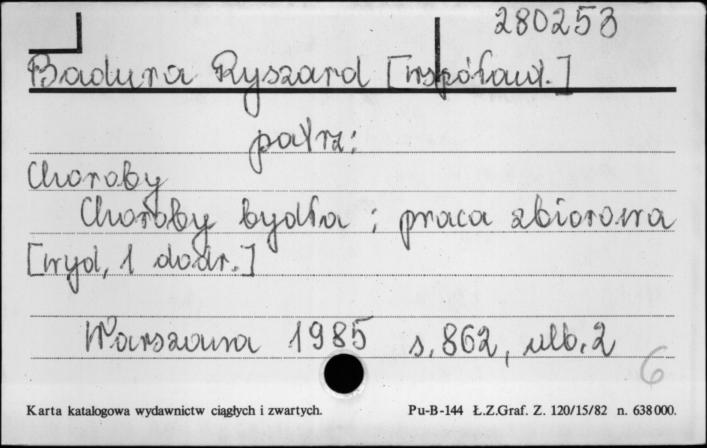 280253
Badura Ryszard [współaut.]
patrz:
Choroby
Choroby bydła : praca zbiorowa
[wyd, 1 dodr.]
Warszawa 1985 s, 862, nlb. 2
6
Karta katalogowa wydawnictw ciągłych i zwartych. Pu-B-144 Ł.Z.Graf. Z. 120/15/82 n. 638000.